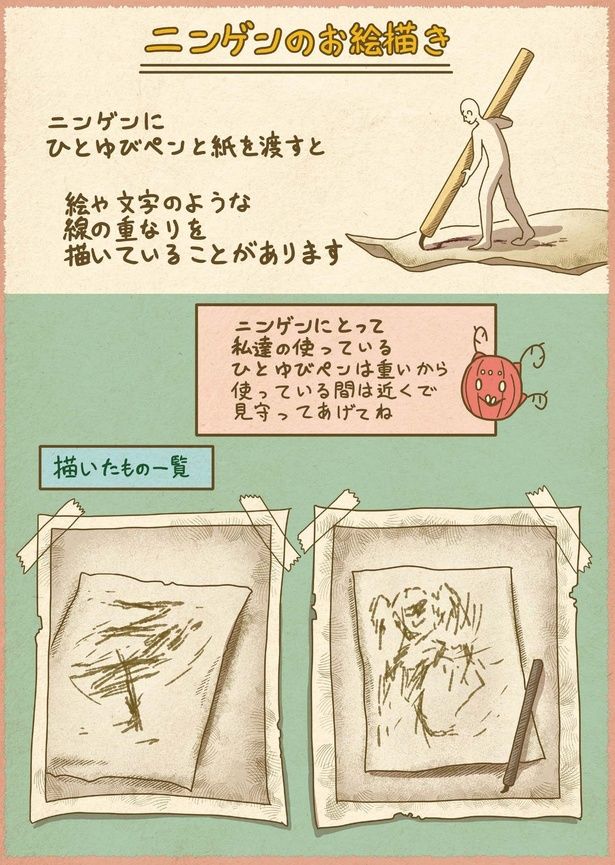 ニンゲンのお絵描き
ニンゲンに
ひとゆびペンと紙を渡すと
絵や文字のような
線の重なりを
描いていることがあります
ニンゲンにとって
私達の使っている
ひとゆびペンは重いから
使っている間は近くで
見守ってあげてね
描いたもの一覧